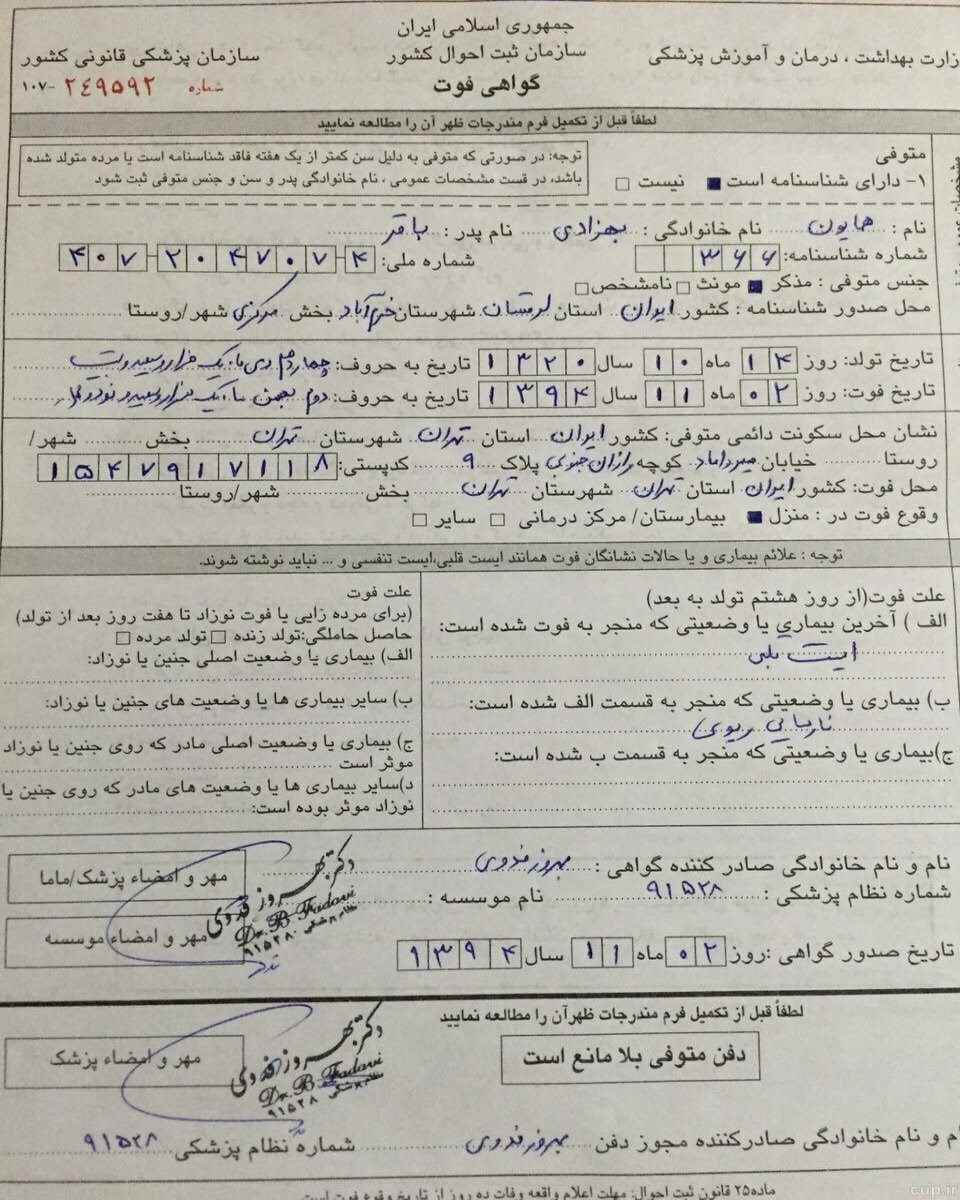 جمهوری اسلامی ایران
زارت بهداشت ، درمان و آموزش پزشکی
سازمان ثبت احوال کشور
سازمان پزشکی قانونی کشور
گواهی فوت
شماره ۲۴۹۵۹۲ -۱۰۷
لطفاً قبل از تکمیل فرم مندرجات ظهر آن را مطالعه نمایید
متوفی
۱- دارای شناسنامه است نیست
توجه: در صورتی که متوفی به دلیل سن کمتر از یک هفته فاقد شناسنامه است یا مرده متولد شده
باشد، در قست مشخصات عمومی ، نام خانوادگی پدر و سن و جنس متوفی ثبت شود
نام : همایون نام خانوادگی : بهزادی نام پدر : باقر
شماره شناسنامه: ۳۶۶ شماره ملی: ۴۰۷-۲۰۴۷۰۷-۴
جنس متوفی : مذکر مونث نامشخص
محل صدور شناسنامه : کشور ایران استان لرستان شهرستان خرم‌آباد بخش مرکزی شهر/روستا
تاریخ تولد: روز ۱۴ ماه ۱۰ سال ۱۳۲۰ تاریخ به حروف: چهاردهم دی ماه یک هزار و سیصد و بیست
تاریخ فوت: روز ۰۲ ماه ۱۱ سال ۱۳۹۴ تاریخ به حروف: دوم بهمن ماه یک هزار و سیصد و نود و چهار
نشان محل سکونت دائمی متوفی: کشور ایران استان تهران شهرستان تهران بخش شهر/
روستا خیابان میرداماد کوچه رازان جنوبی پلاک ۹ کدپستی: ۱۵۴۷۹۱۷۱۱۸
محل فوت: کشور ایران استان تهران شهرستان تهران بخش شهر/روستا
وقوع فوت در : منزل بیمارستان/ مرکز درمانی سایر
توجه : علائم بیماری و یا حالات نشانگان فوت همانند ایست قلبی،ایست تنفسی و ... نباید نوشته شوند.
علت فوت(از روز هشتم تولد به بعد)
الف ) آخرین بیماری یا وضعیتی که منجر به فوت شده است:
ایست قلبی
ب) بیماری یا وضعیتی که منجر به قسمت الف شده است:
نارسایی ریوی
ج)بیماری یا وضعیتی که منجر به قسمت ب شده است:
علت فوت
(برای مرده زایی یا فوت نوزاد تا هفت روز بعد از تولد)
حاصل حاملگی:تولد زنده تولد مرده
الف) بیماری یا وضعیت اصلی جنین یا نوزاد:
ب) سایر بیماری ها یا وضعیت های جنین یا نوزاد:
ج) بیماری یا وضعیت اصلی مادر که روی جنین یا نوزاد
موثر است
د)سایر بیماری ها یا وضعیت های مادر که روی جنین یا
نوزاد موثر بوده است:
نام و نام خانوادگی صادر کننده گواهی : بهروز فدوی
مهر و امضاء پزشک/ماما
شماره نظام پزشکی : ۹۱۵۲۸ نام موسسه :
مهر و امضاء موسسه
دکتر بهروز فدوی
Dr. B. Fadavi
نظام پزشکی ۹۱۵۲۸
تاریخ صدور گواهی :روز ۰۲ ماه ۱۱ سال ۱۳۹۴
لطفاً قبل از تکمیل فرم مندرجات ظهرآن را مطالعه نمایید
دفن متوفی بلا مانع است
مهر و امضاء پزشک
دکتر بهروز فدوی
Dr. B. Fadavi
نظام پزشکی ۹۱۵۲۸
م و نام خانوادگی صادرکننده مجوز دفن بهروز فدوی شماره نظام پزشکی ۹۱۵۲۸
ماده۲۵ قانون ثبت احوال: مهلت اعلام واقعه وفات ده روز از تاریخ وقوع فوت است
cup.ir